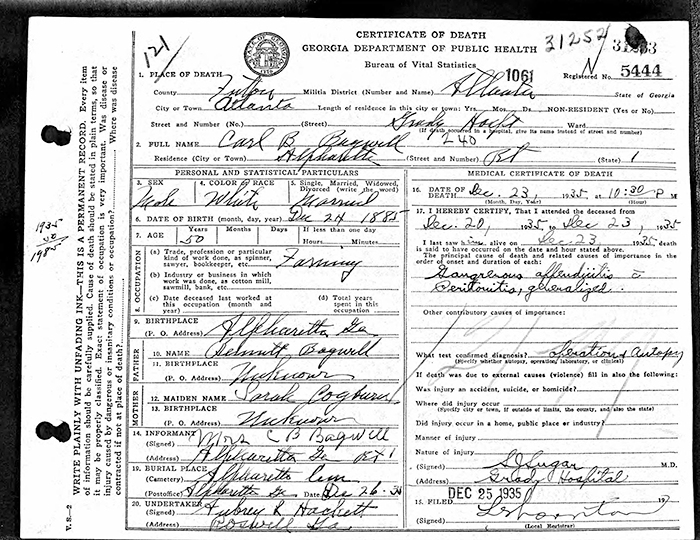 121
31252
31233
CERTIFICATE OF DEATH
GEORGIA DEPARTMENT OF PUBLIC HEALTH
Bureau of Vital Statistics
1061
Registered No. 5444
1. PLACE OF DEATH
County Fulton Militia District (Number and Name) Atlanta State of Georgia
City or Town Atlanta Length of residence in this city or town: Yrs. Mos. Da. NON-RESIDENT (Yes or No)
Street and Number (No.) (Street) Grady Hospt Ward
(If death occurred in a hospital, give its name instead of street and number)
240
2. FULL NAME Carl B. Bagwell
Residence (City or Town) Alpharetta (Street and Number) Rt (State) 1
PERSONAL AND STATISTICAL PARTICULARS
3. SEX Male 4. COLOR or RACE White 5. Single, Married, Widowed, Divorced (write the word) Married
6. DATE OF BIRTH (month, day, year) Dec 24 1885
7. AGE 50 Years Months Days If less than one day Hours Minutes
8. OCCUPATION
(a) Trade, profession or particular kind of work done, as spinner, sawyer, bookkeeper, etc. Farming
(b) Industry or business in which work was done, as cotton mill, sawmill, bank, etc.
(c) Date deceased last worked at this occupation (month and year)
(d) Total years spent in this occupation
9. BIRTHPLACE
(P. O. Address) Alpharetta Ga
FATHER
10. NAME Bagwell
11. BIRTHPLACE
(P. O. Address) Unknown
MOTHER
12. MAIDEN NAME Sarah Cogburn
13. BIRTHPLACE
(P. O. Address) Unknown
14. INFORMANT
(Signed) Mrs C B Bagwell
(Address) Alpharetta Ga Rt 1
19. BURIAL PLACE
(Cemetery) Alpharetta Cem
(Postoffice) Alpharetta Ga Date Dec 26-35
20. UNDERTAKER
(Signed) Aubrey R Hackett
(Address) Roswell Ga
MEDICAL CERTIFICATE OF DEATH
16. DATE OF DEATH Dec. 23, 1935, at 10:30 P M
(Month, Day, Year) (Hour)
17. I HEREBY CERTIFY, That I attended the deceased from
Dec. 20, 1935 to Dec 23, 1935
I last saw him alive on Dec. 23 1935 death
is said to have occurred on the date and hour stated above.
The principal cause of death and related causes of importance in the
order of onset and duration of death:
Gangrenous appendicitis c̄
Peritonitis, generalized.
Other contributory causes of importance:
What test confirmed diagnosis? Operation & Autopsy
(Specify whether autopsy, operation, laboratory, or clinical)
If death was due to external causes (violence) fill in also the following:
Was injury an accident, suicide, or homicide?
Where did injury occur
(Specify city or town, if outside of limits, the county, and also the state)
Did injury occur in a home, public place or industry?
Manner of injury
Nature of injury
(Signed) S J Sugar M.D.
(Address) Grady Hospital
15. FILED DEC 25 1935 19
(Signed)
(Local Registrar)
WRITE PLAINLY WITH UNFADING INK—THIS IS A PERMANENT RECORD. Every item
of information should be carefully supplied. Cause of death should be stated in plain terms, so that
it may be properly classified. Exact statement of occupation is very important. Was disease or
injury caused by dangerous or insanitary conditions or occupation? Where was disease
contracted if not at place of death?
V. S.—2
1935
50
1985